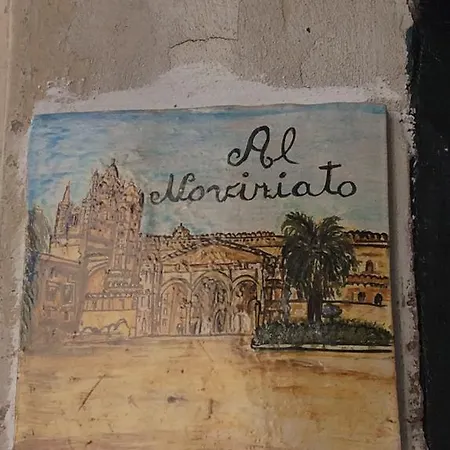 Al
Noviziato